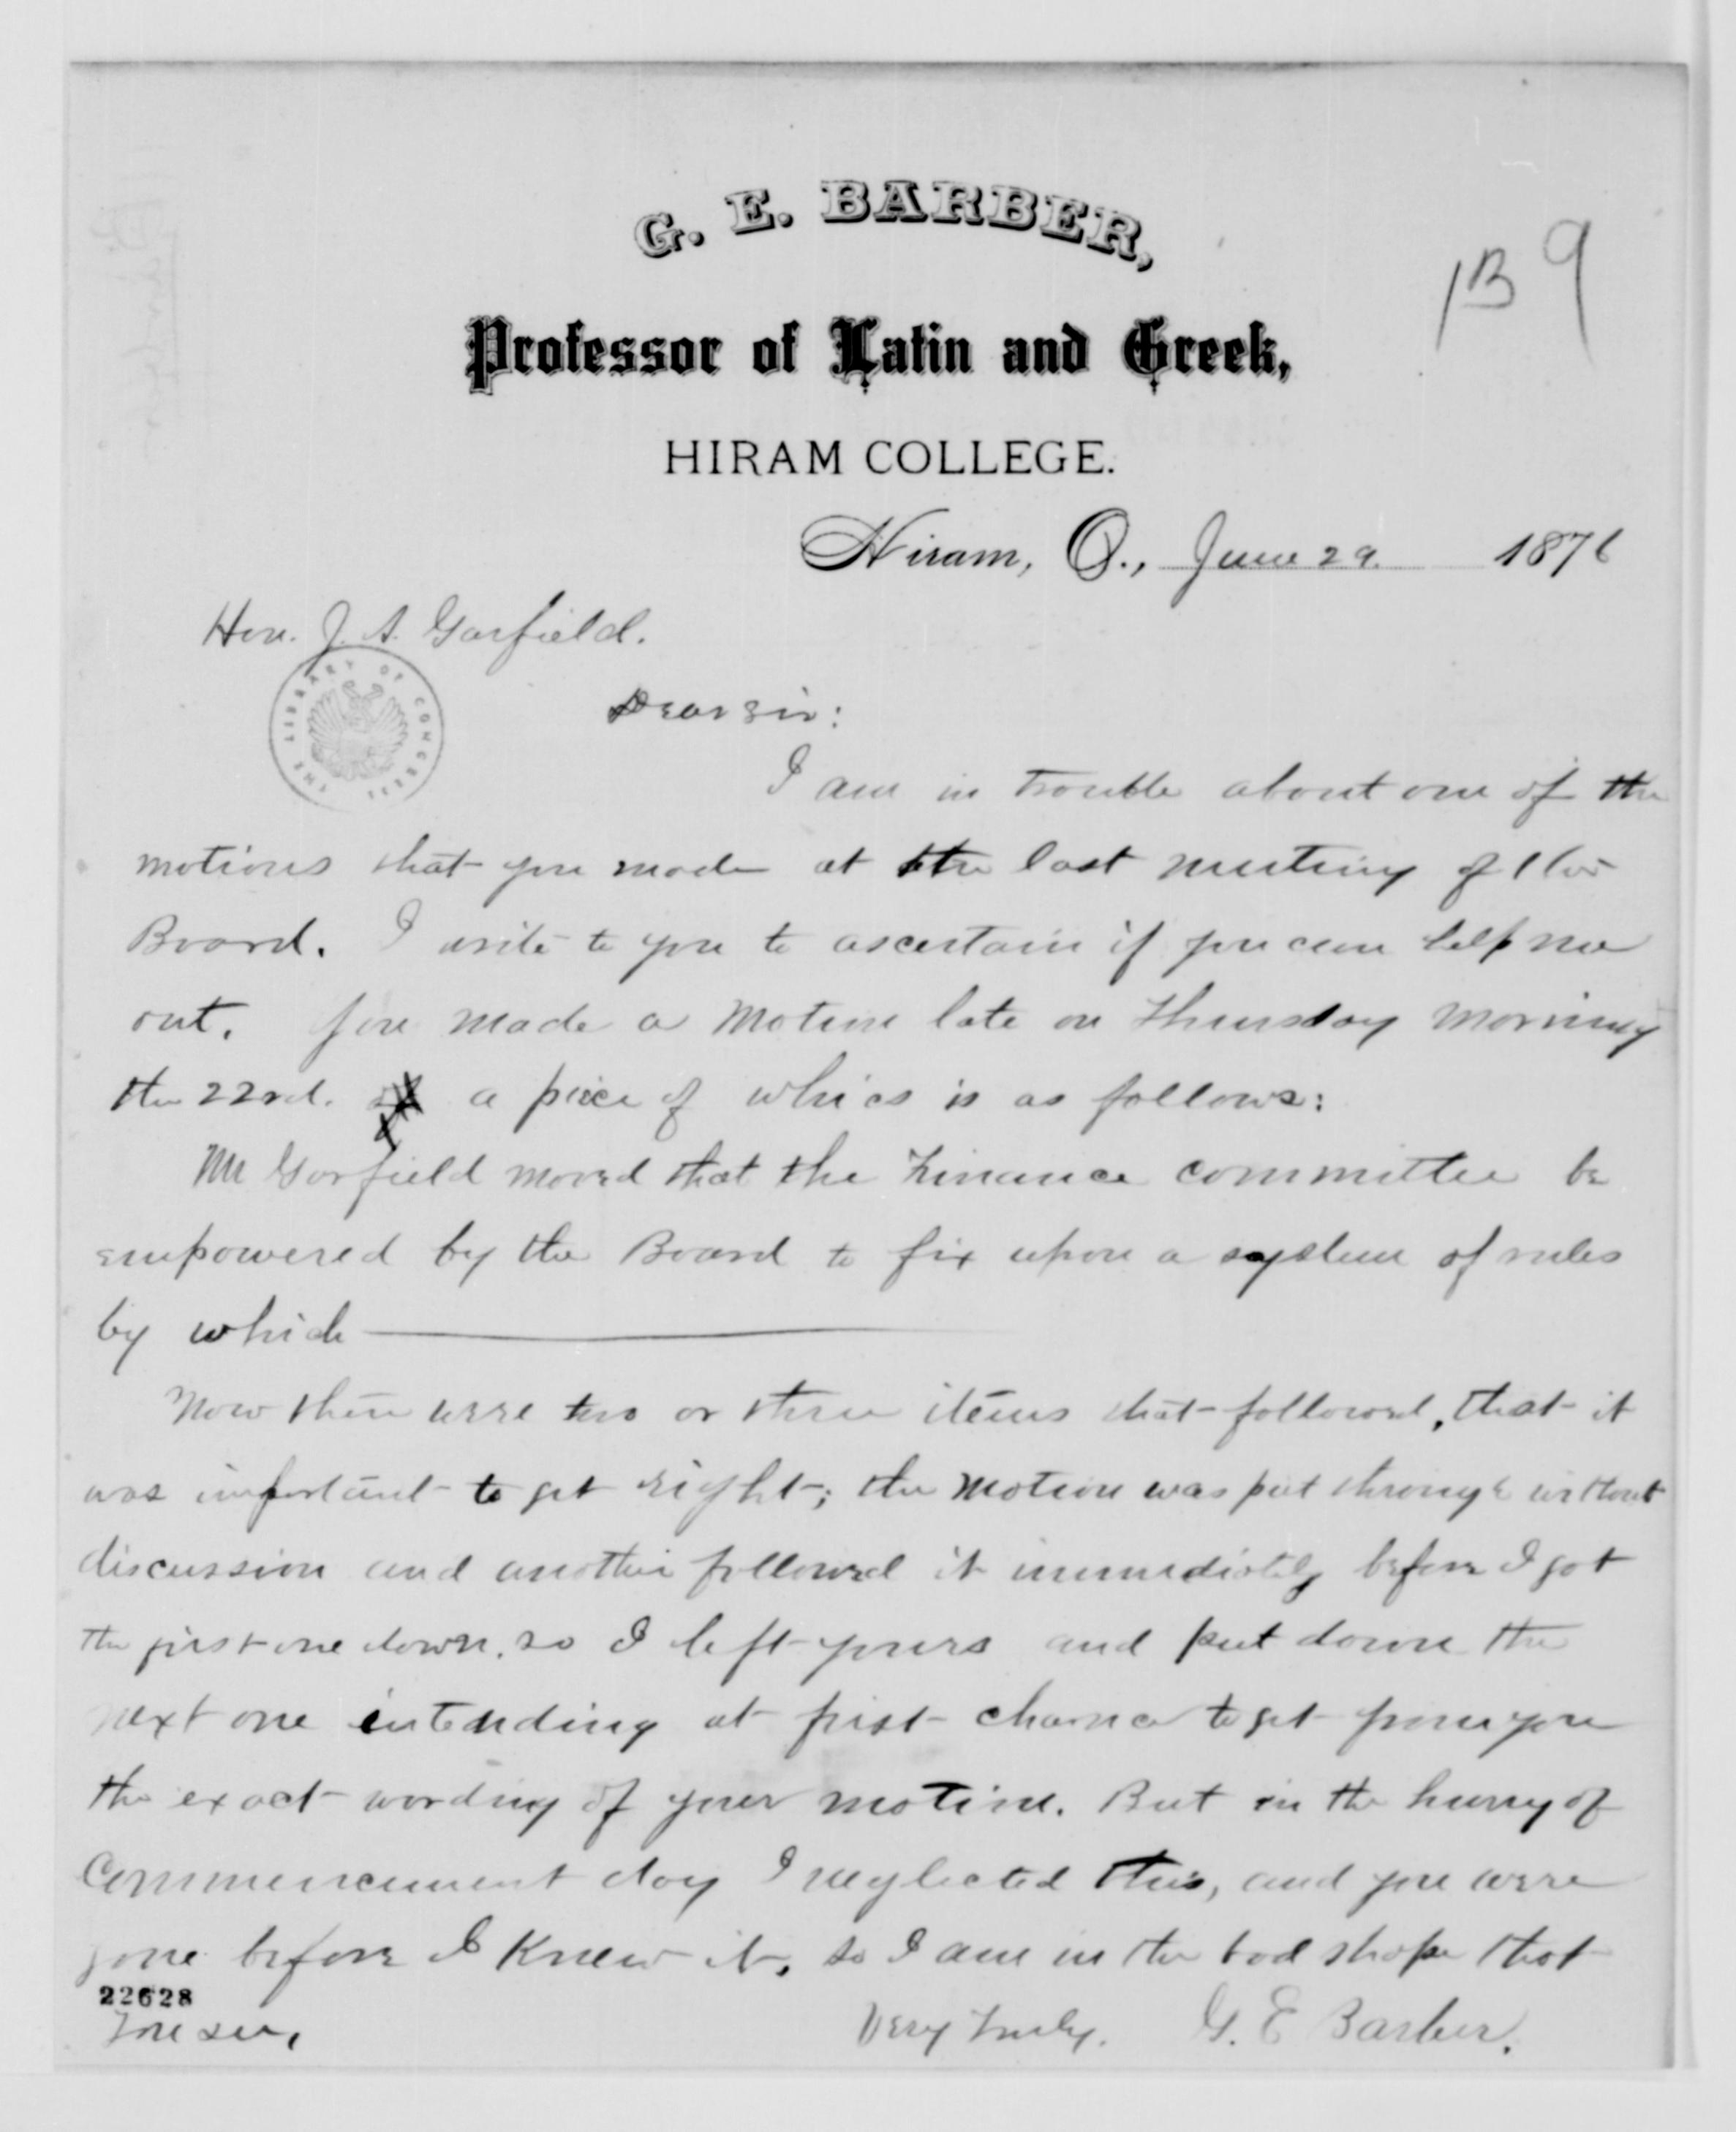 G. E. BARBER,
Professor of Latin and Greek,
HIRAM COLLEGE.
B 9
Hiram, O., June 29. 1876
Hon. J. A. Garfield.
THE LIBRARY OF CONGRESS
Dear sir:
I am in trouble about one of the
motions that you made at the last meeting of the
Board. I write to you to ascertain if you can help me
out. You made a motion late on Thursday morning
the 22nd. a piece of which is as follows:
Mr Garfield moved that the Finance committee be
empowered by the Board to fix upon a system of rules
by which
Now there were two or three items that followed, that it
was important to get right; the motion was put through without
discussion and another followed it immediately before I got
the first one down, so I left yours and put down the
next one intending at first chance to get from you
the exact wording of your motion. But in the hurry of
Commencement day I neglected this, and you were
gone before I knew it, so I am in the bad shape that
22628
You see,
Very Truly. G. E Barber.